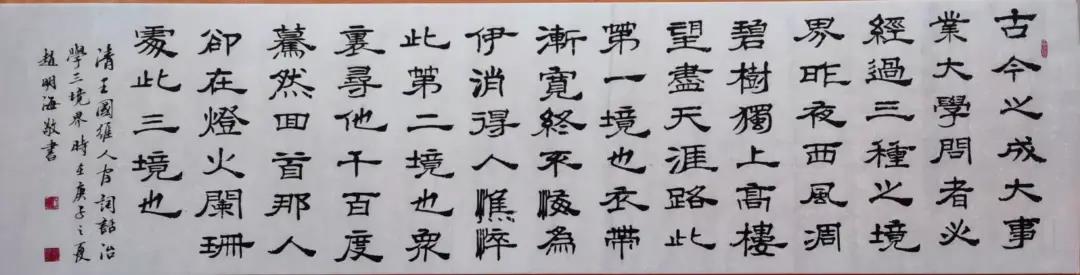 古今之成大事
業大學問者必
經過三種之境
界昨夜西風凋
碧樹獨上高樓
望盡天涯路此
第一境也衣帶
漸寬終不悔為
伊消得人憔悴
此第二境也眾
裏尋他千百度
驀然回首那人
卻在燈火闌珊
處此三境也
清王國維人間詞話治
學三境界時在庚子之夏
趙明海敬書